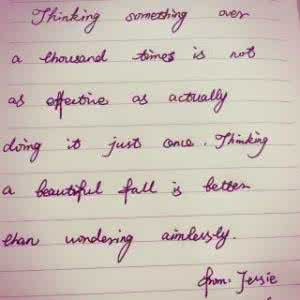 Thinking something over
a thousand times is not
as effective as actually
doing it just once. Thinking
a beautiful fall is better
than wondering aimlessly.
from. Jessie